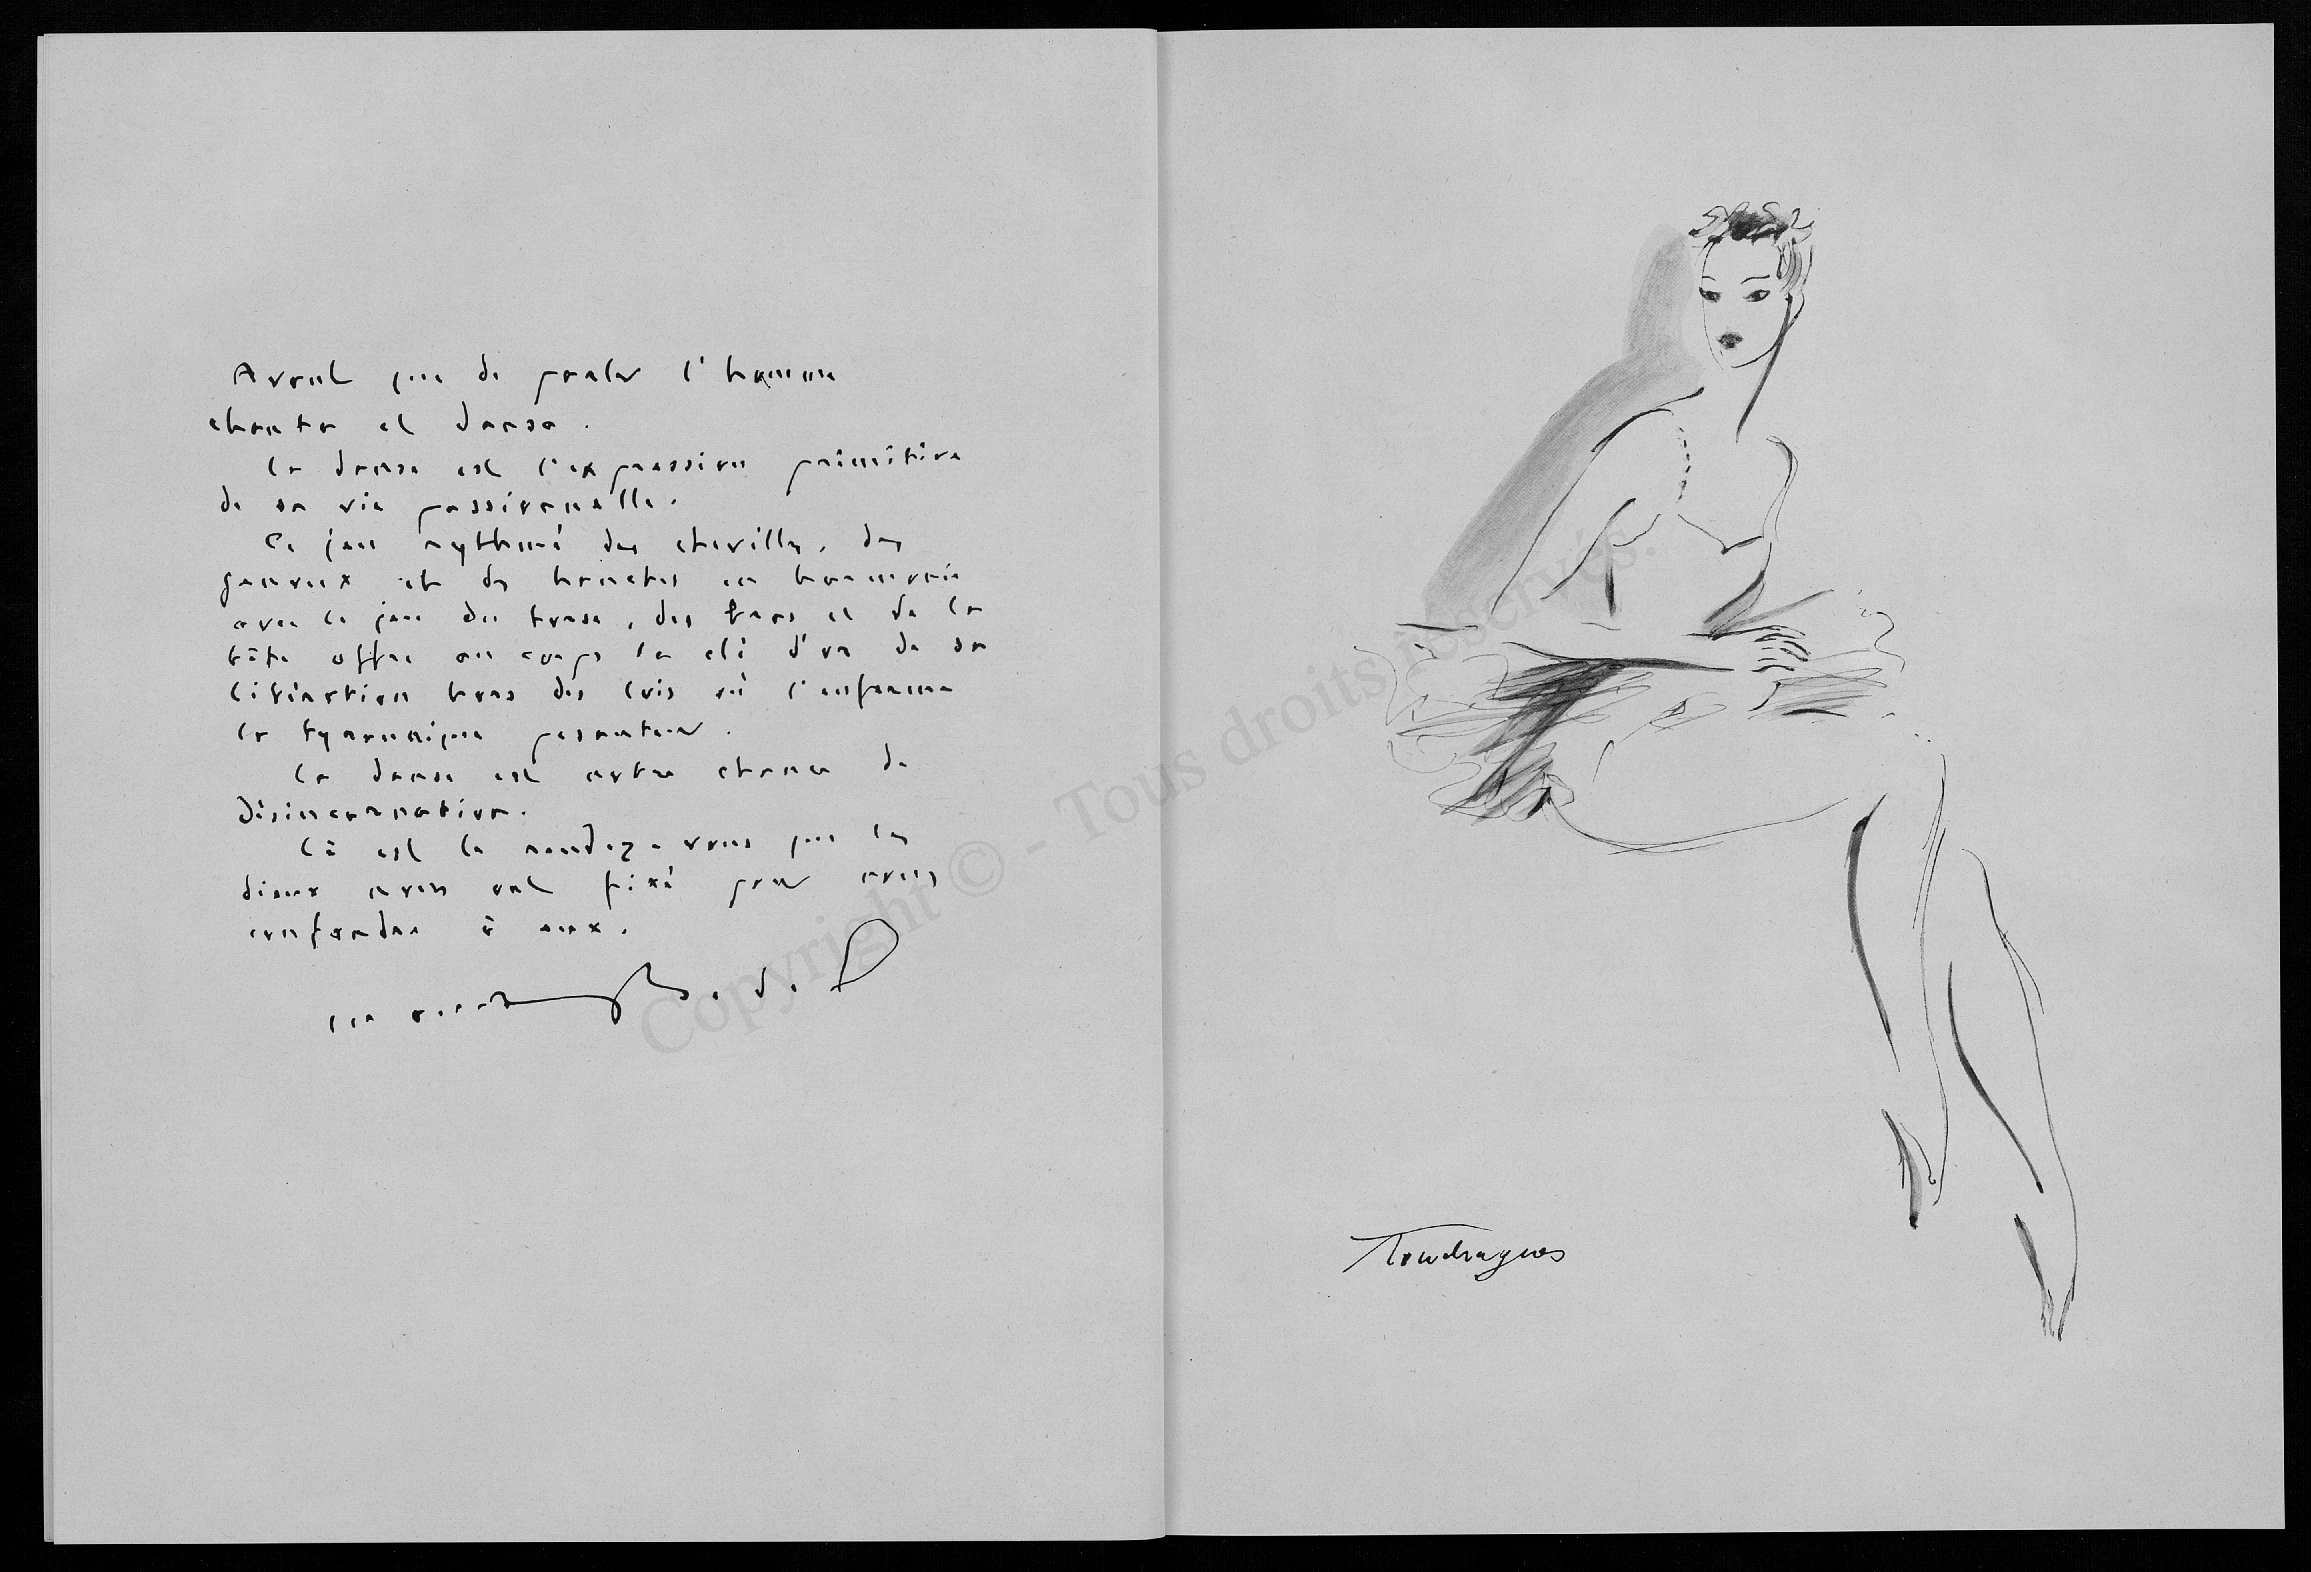 Avant que de parler l'homme
chanta et dansa.
La danse est l'expression primitive
de sa vie passionnelle.
Ce jeu rythmé des chevilles, des
genoux et des hanches en harmonie
avec le jeu du torse, des bras et de la
tête offre au corps la clé d'or de sa
libération hors des lois où l'enferme
la tyrannique pesanteur.
La danse est notre chance de
désincarnation.
Là est le rendez-vous que les
dieux nous ont fixé pour nous
confondre à eux.
Touchagues
Copyright © - Tous droits réservés.